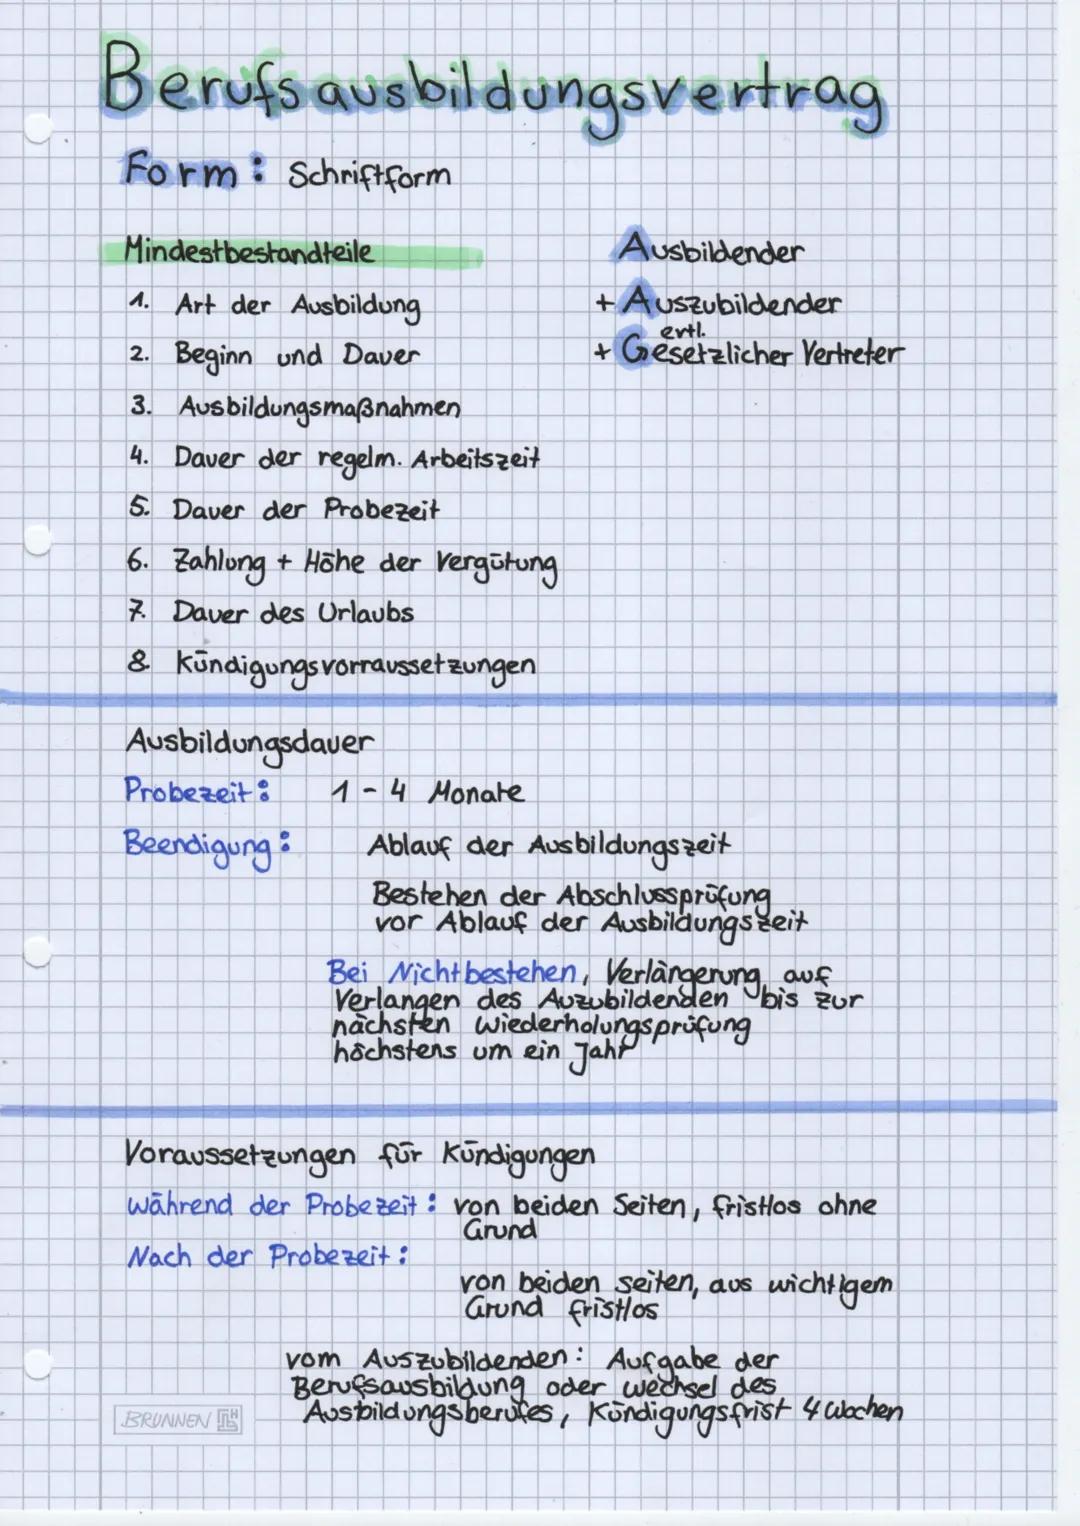 Berufsausbildungsvertrag
Form: Schriftform
Mindestbestandteile
1. Art der Ausbildung
2. Beginn und Dauer
3. Ausbildungsmaßnahmen
4. Dauer der regelm. Arbeitszeit
5. Dauer der Probezeit
6. Zahlung + Höhe der Vergütung
7. Dauer des Urlaubs
8. Kündigungsvorraussetzungen
Ausbildender
+ Auszubildender
evtl.
+ Gesetzlicher Vertreter
Ausbildungsdauer
Probezeit: 1 - 4 Monate
Beendigung: Ablauf der Ausbildungszeit
Bestehen der Abschlussprüfung
vor Ablauf der Ausbildungszeit
Bei Nichtbestehen, Verlängerung auf
Verlangen des Auzubildenden bis zur
nächsten Wiederholungsprüfung
höchstens um ein Jahr
Voraussetzungen für Kündigungen
Während der Probezeit: von beiden Seiten, fristlos ohne
Grund
Nach der Probezeit:
von beiden seiten, aus wichtigem
Grund fristlos
vom Auszubildenden: Aufgabe der
Berufsausbildung oder wechsel des
Ausbildungsberufes, Kündigungsfrist 4 Wochen
BRUNNEN